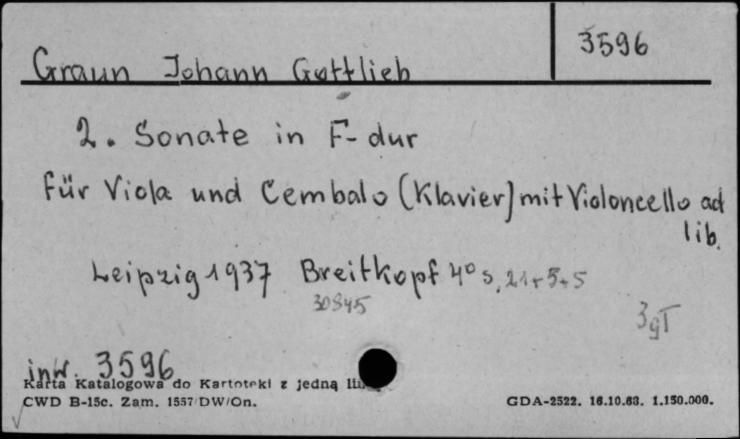 3596
Graun Johann Gottlieb
2. Sonate in F-dur
für Viola und Cembalo (Klavier) mit Violoncello ad
lib.
Leipzig 1937 Breitkopf 4° s. 21+5+5
30845
3gT
inw. 3596
Karta Katalogowa do Kartoteki z jedną
CWD B-15c. Zam. 1557/DW/On.
GDA-2522. 16.10.63. 1.150.000.